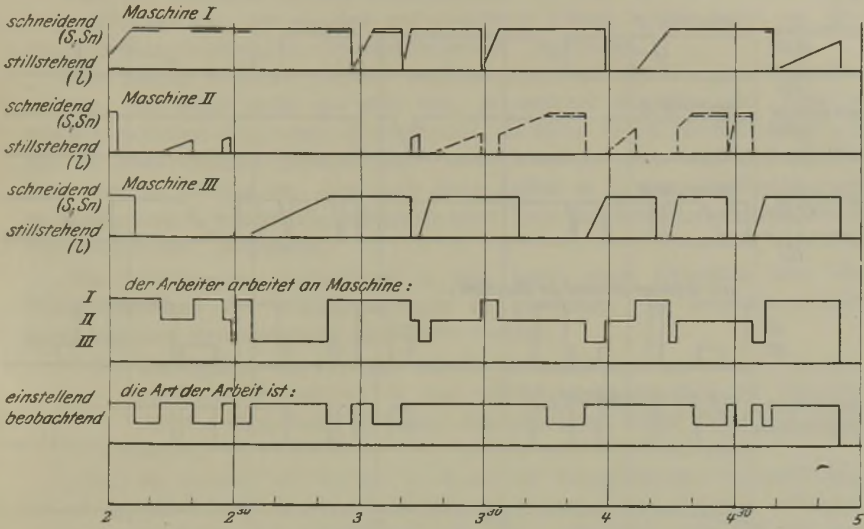 Maschine I
schneidend
(S,Sn)
stillstehend
(l)
Maschine II
schneidend
(S,Sn)
stillstehend
(l)
Maschine III
schneidend
(S,Sn)
stillstehend
(l)
der Arbeiter arbeitet an Maschine:
I
II
III
die Art der Arbeit ist:
einstellend
beobachtend
2 2³⁰ 3 3³⁰ 4 4³⁰ 5